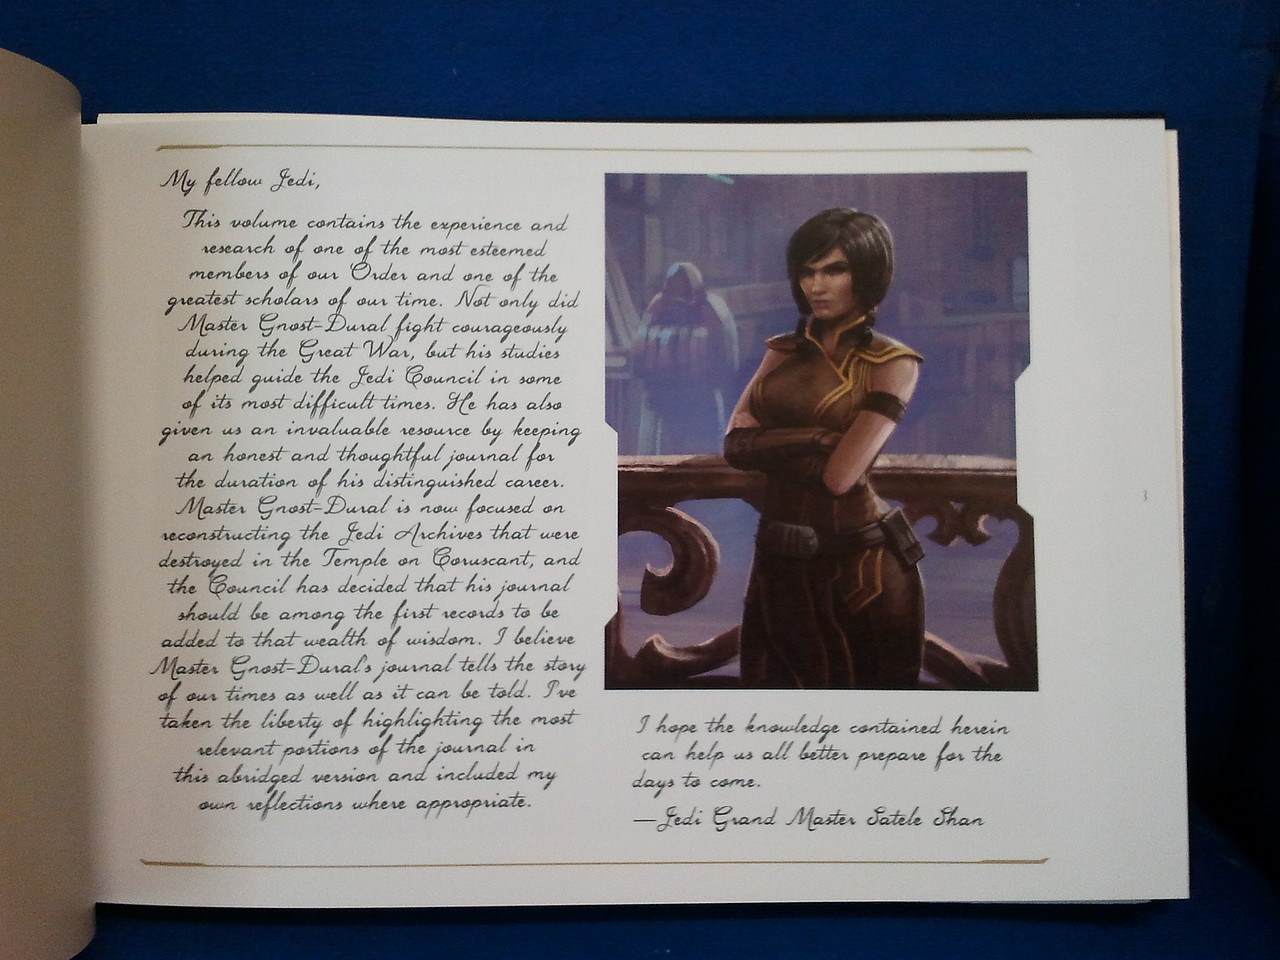 My fellow Jedi,
This volume contains the experience and
research of one of the most esteemed
members of our Order and one of the
greatest scholars of our time. Not only did
Master Gnost-Dural fight courageously
during the Great War, but his studies
helped guide the Jedi Council in some
of its most difficult times. He has also
given us an invaluable resource by keeping
an honest and thoughtful journal for
the duration of his distinguished career.
Master Gnost-Dural is now focused on
reconstructing the Jedi Archives that were
destroyed in the Temple on Coruscant, and
the Council has decided that his journal
should be among the first records to be
added to that wealth of wisdom. I believe
Master Gnost-Dural's journal tells the story
of our times as well as it can be told. I've
taken the liberty of highlighting the most
relevant portions of the journal in
this abridged version and included my
own reflections where appropriate.
I hope the knowledge contained herein
can help us all better prepare for the
days to come.
—Jedi Grand Master Satele Shan
3